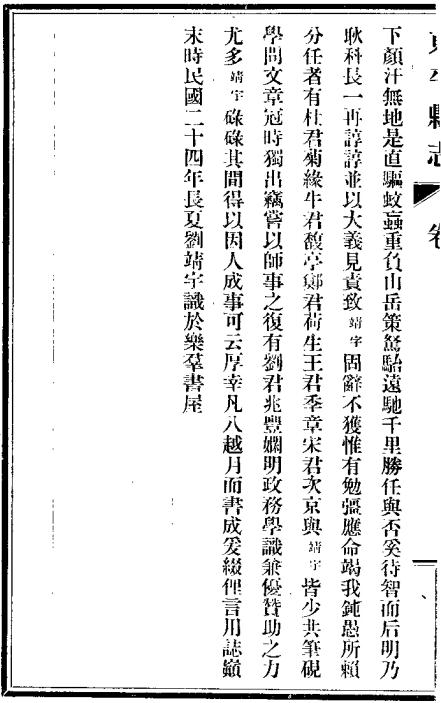 東平縣志
卷
下顏汗無地是直驅蚊蝱重負山岳策駑駘遠馳千里勝任與否奚待智而后明乃
耿科長一再諄諄並以大義見責致靖宇固辭不獲惟有勉彊應命竭我鈍愚所賴
分任者有杜君菊緣牛君馥亭鄭君荷生王君季章宋君次京與靖宇皆少共筆硯
學問文章冠時獨出竊嘗以師事之復有劉君兆豐嫻明政務學識兼優贊助之力
尤多靖宇碌碌其間得以因人成事可云厚幸凡八越月而書成爰綴俚言用誌顚
末時民國二十四年長夏劉靖宇識於樂羣書屋